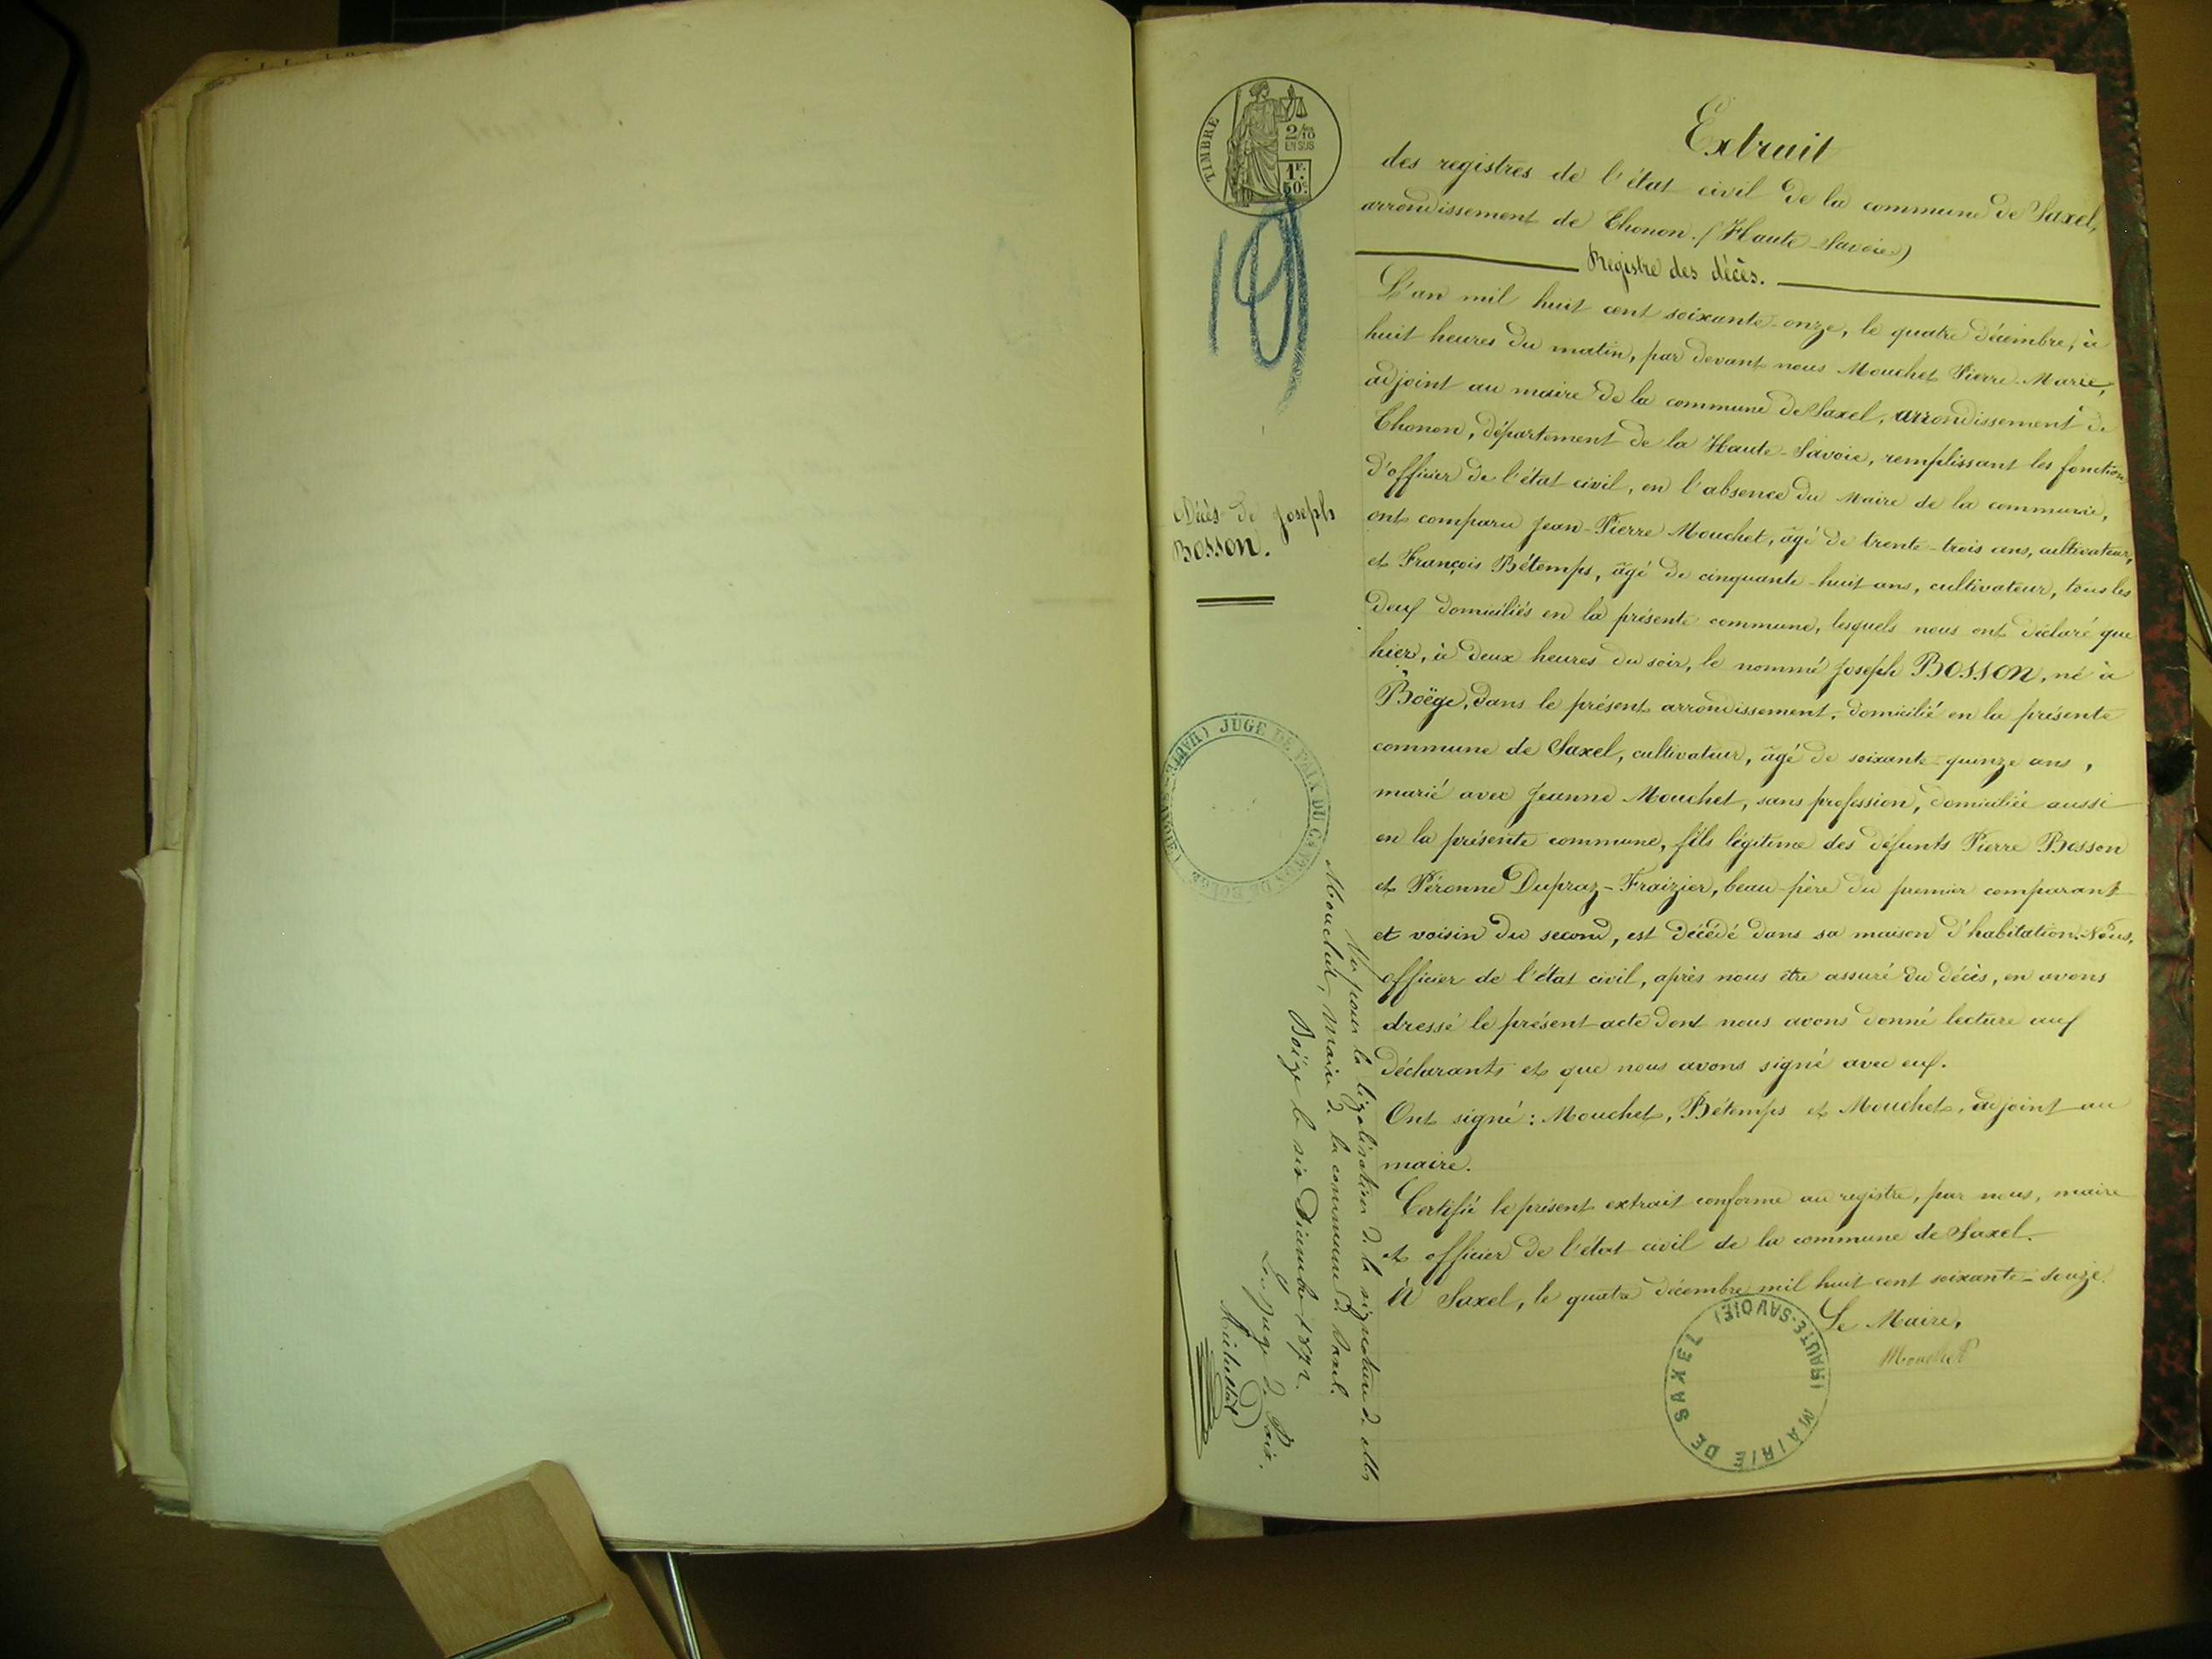 TIMBRE
2/10
EN SUS
1F.
50c.
19
Extrait
des registres de l'état civil de la commune de Saxel,
arrondissement de Thonon. (Haute-Savoie)
Registre des décès.
L'an mil huit cent soixante-onze, le quatre décembre, à
huit heures du matin, par devant nous Mouchet Pierre-Marie,
adjoint au maire de la commune de Saxel, arrondissement de
Thonon, département de la Haute-Savoie, remplissant les fonctions
d'officier de l'état civil, en l'absence du Maire de la commune,
ont comparu Jean-Pierre Mouchet, âgé de trente-trois ans, cultivateur,
et François Bétemps, âgé de cinquante-huit ans, cultivateur, tous les
deux domiciliés en la présente commune, lesquels nous ont déclaré que
hier, à deux heures du soir, le nommé Joseph BOSSON, né à
Boëge, dans le présent arrondissement, domicilié en la présente
commune de Saxel, cultivateur, âgé de soixante-quinze ans,
marié avec Jeanne Mouchet, sans profession, domiciliée aussi
en la présente commune, fils légitime des défunts Pierre Bosson
et Péronne Dupraz-Fraizier, beau-père du premier comparant
et voisin du second, est décédé dans sa maison d'habitation. Nous,
officier de l'état civil, après nous être assuré du décès, en avons
dressé le présent acte dont nous avons donné lecture aux
déclarants et que nous avons signé avec eux.
Ont signé : Mouchet, Bétemps et Mouchet, adjoint au
maire.
Certifié le présent extrait conforme au registre, par nous, maire
et officier de l'état civil de la commune de Saxel.
A Saxel, le quatre décembre mil huit cent soixante-douze.
Le Maire,
Mouchet
MAIRIE DE SAXEL (HAUTE-SAVOIE)
Décès de Joseph
Bosson.
JUGE DE PAIX DU CANTON DE BOËGE (HAUTE-SAVOIE)
Vu pour la légalisation de la signature de Mr
Mouchet, maire de la commune de Saxel.
Boëge le six Décembre 1872.
Le Juge de Paix,